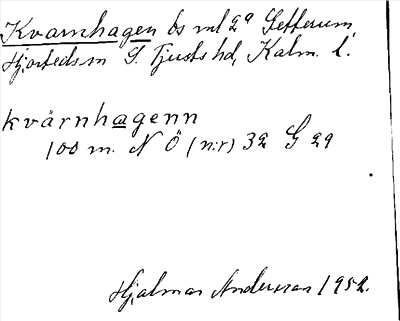 Kvarnhagen bs ml 2ª Sefferum,
Hjorteds sn S. Tjusts hd, Kalm. l.
kvärnhagenn
100 m. N Ö (n:r) 32 G 29
Hjalmar Andersson 1952.